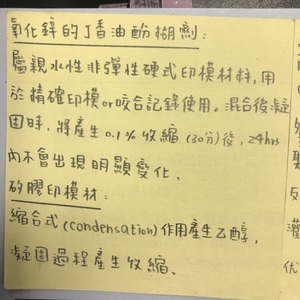 氧化鋅的丁香油酚糊劑:
屬親水性非彈性硬式印模材料,用
於精確印模or咬合記錄使用。混合後凝
固時,將產生0.1%收縮(30分)後,24hrs
內不會出現明顯變化、
矽膠印模材:
縮合式(condensation)作用產生乙醇,
凝固過程產生收縮、